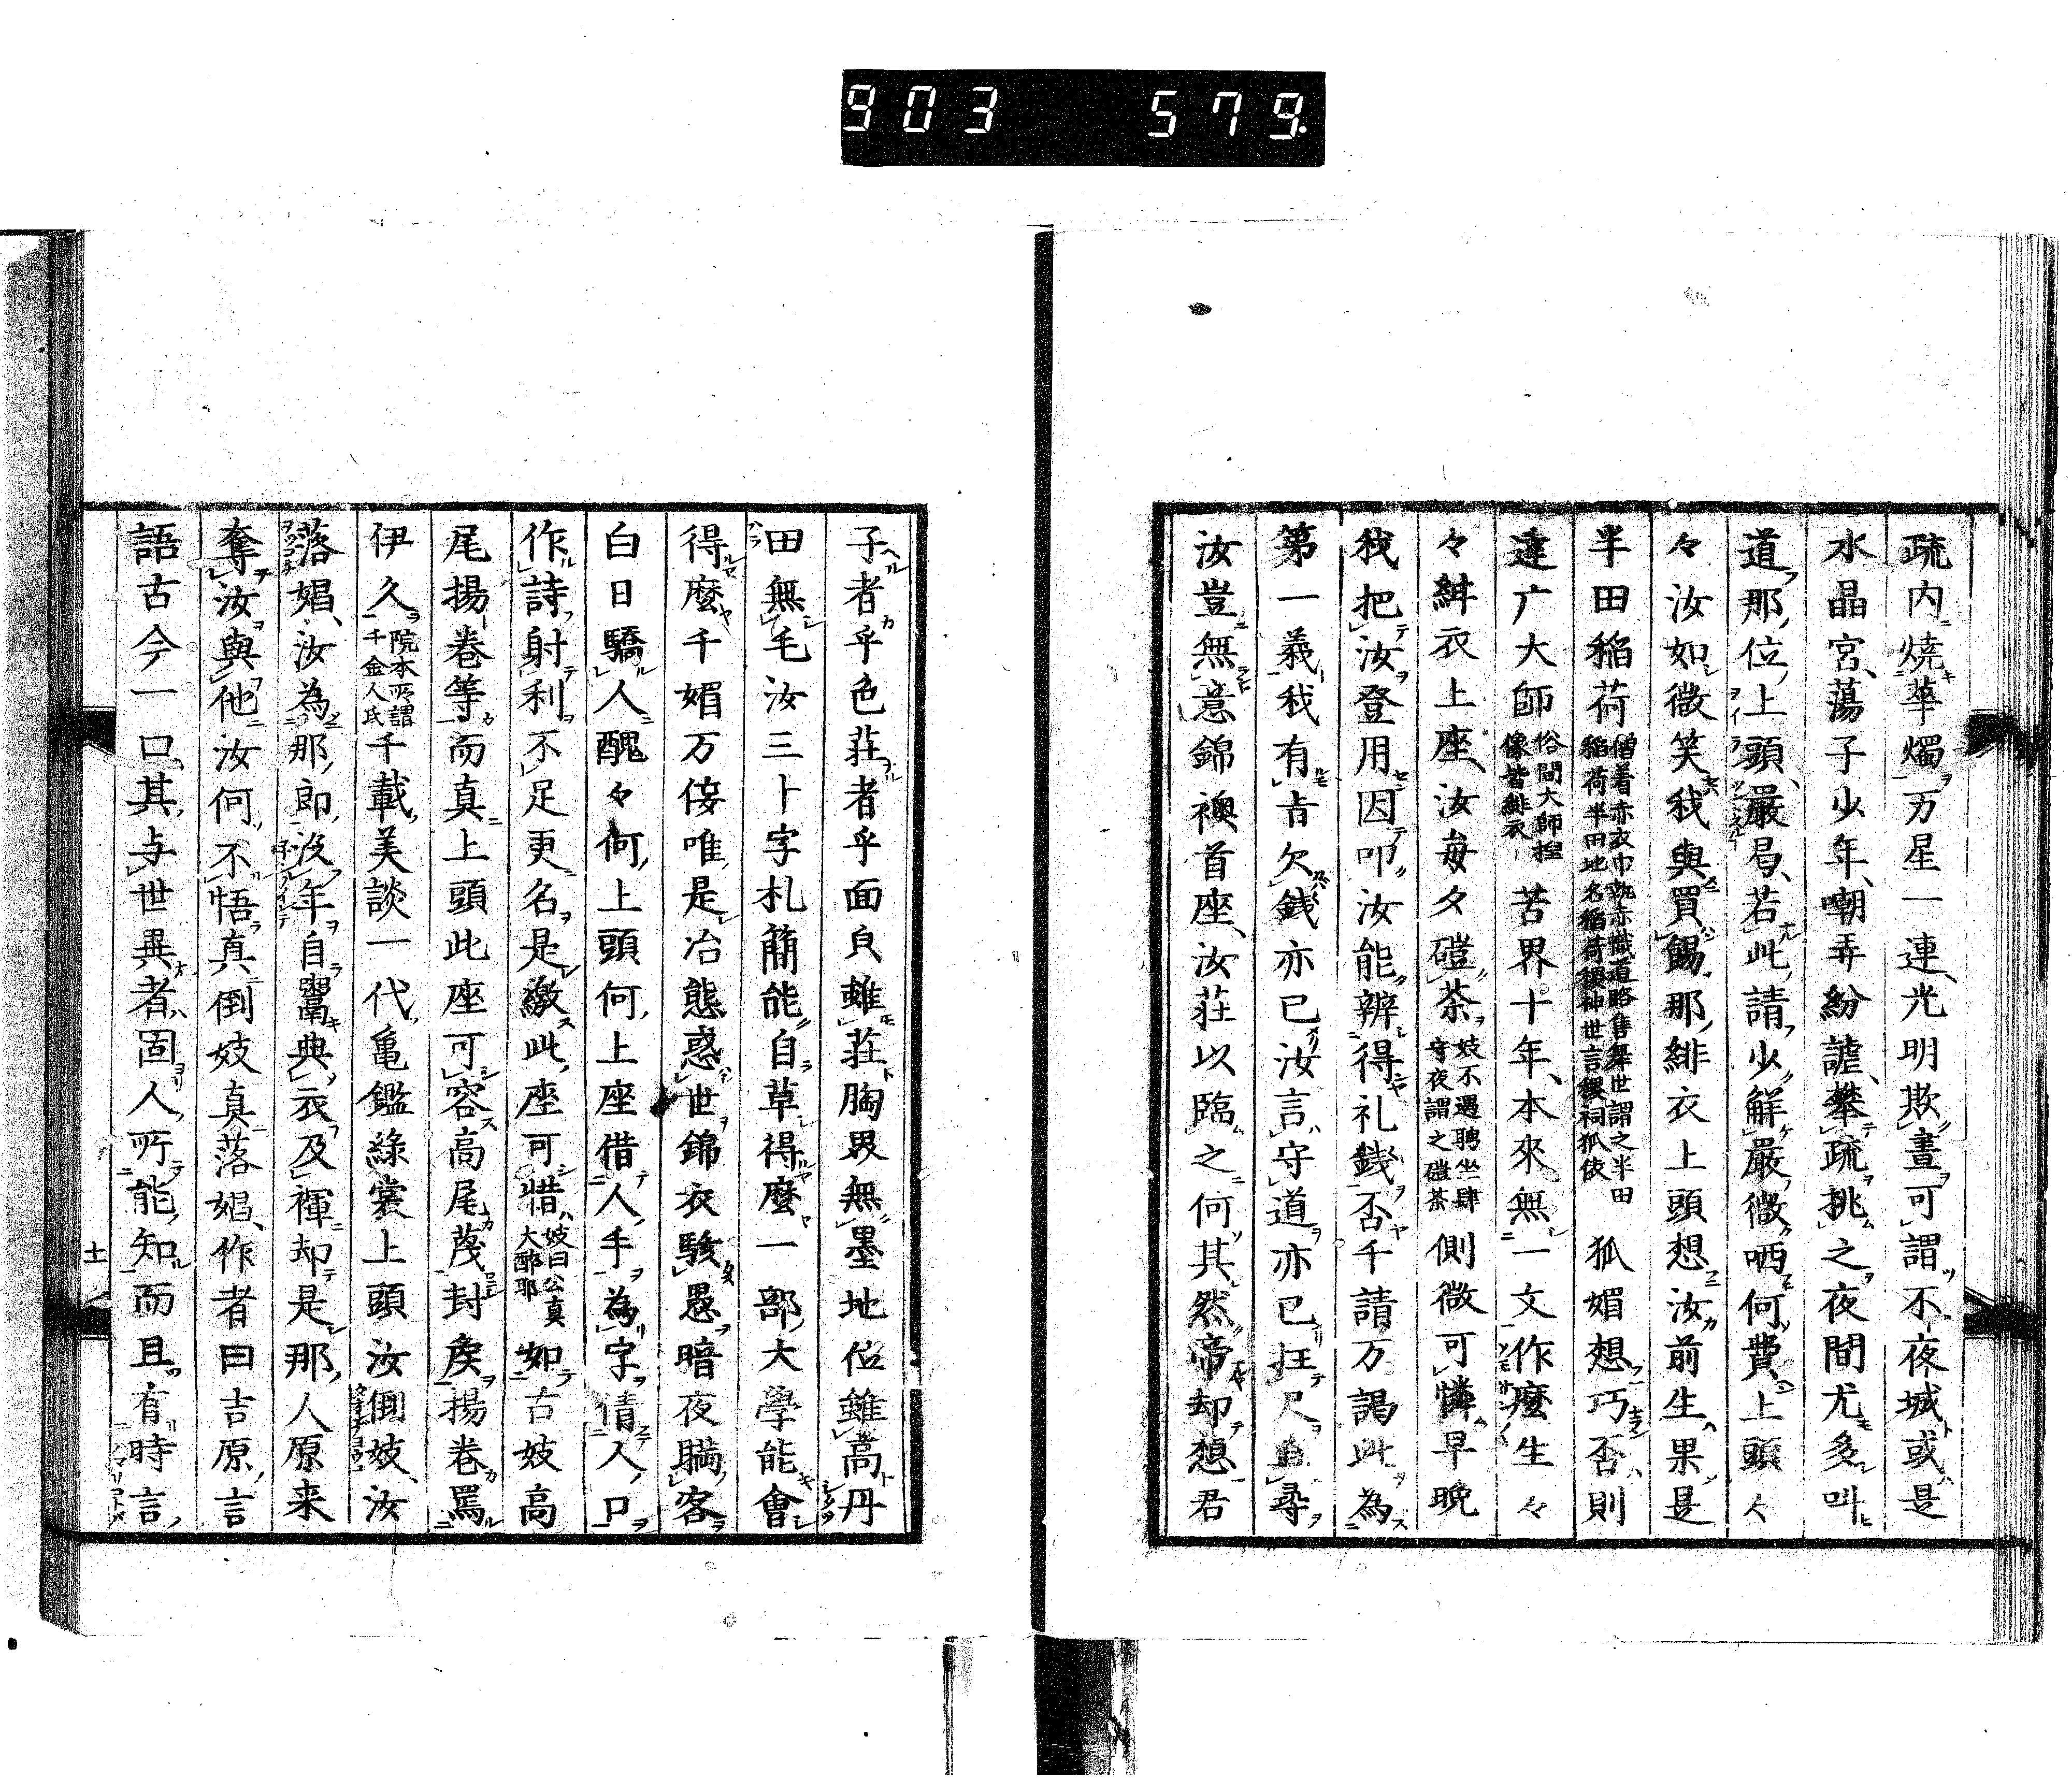 903 579
疏内燒華燭万星一連光明欺晝可謂不夜城或是
水晶宮、蕩子少年、嘲弄紛謔、攀疏挑之夜間尤多叫
道那位上頭、嚴局、若此請少解嚴微哂何費上頭々
々汝如微笑我與買錫那緋衣上頭想汝前生果是
半田稲荷僧着赤衣巾執赤幟道路售舞世謂之半田稲荷半田地名稲荷稷神世言稷祠狐使狐媚想巧否則
達广大師俗間大師捏像皆緋衣苦界十年、本來無一文作麼生々
々緋衣上座、汝毎夕磑茶妓不遇聘坐肆守夜謂之磑茶側微可憐早晩
我把汝登用因叩汝能辨得礼錢否千請万謁此為
第一義我有旹欠銭亦已汝言守道亦已枉尺直尋
汝豈無意錦襖首座、汝荘以臨之何其然帝却想君
子者乎色荘者乎面皃雖荘胸界無墨地位雖高丹
田無毛汝三卜字札簡能自草得麼一部大學能會
得麼千媚万侫唯是冶態惑世錦衣駭愚暗夜瞞客
白日驕人醜々何上頭何上座借人手為字倩人口
作詩射利不足更名是繳此座可惜妓曰公真大酔耶如古妓高
尾揚巻等而真上頭此座可容高尾蔑封矦揚巻罵
伊久院本所謂千金人氏千載美談一代亀鑑綠裳上頭汝倒妓、汝
落娼、汝為那郎没年自鬻典衣及褌却是那人原来
奪汝與他汝何不悟真倒妓真落娼、作者曰吉原言
語古今一口其与世異者固人所能知而且有時言
十一